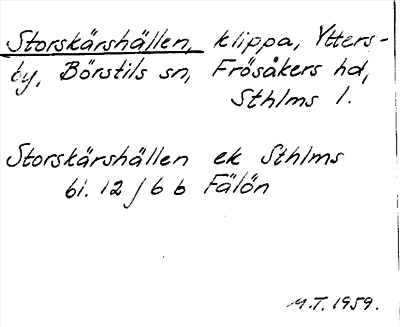 Storskärshällen, klippa, Ytters-
by, Börstils sn, Frösåkers hd,
Sthlms l.
Storskärshällen ek Sthlms
bl. 12 / 6 b Fälön
M.T. 1959.